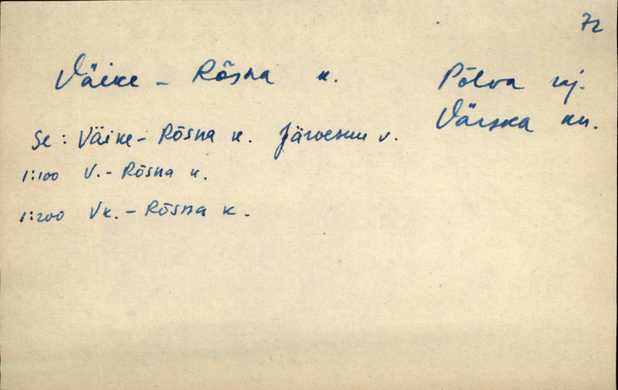 72
Väike - Rõsna k. Põlva raj.
Värska kn.
Se: Väike - Rõsna k. Järvesuu v.
1:100 V. - Rõsna k.
1:200 Vk. - Rõsna k.